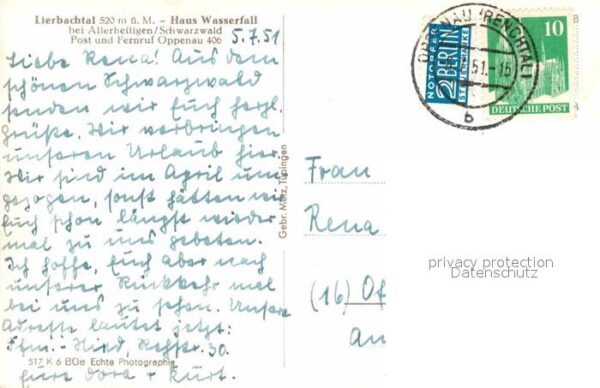 Lierbachtal 520 m ü. M. - Haus Wasserfall
bei Allerheiligen/Schwarzwald
Post und Fernruf Oppenau 406
5.7.51
Liebe Rena! Aus dem
schönen Schwarzwald
senden wir Euch herzl.
Grüße. Wir verbringen
unseren Urlaub hier.
Wir sind im April um-
gezogen, sonst hätten wir
Euch schon längst wieder
mal zu uns gebeten.
Ich hoffe, Euch aber nach
unserer Rückkehr mal
bei uns zu sehen. Unsere
Adresse lautet jetzt:
Rehstr. 30.
Eure Dora + Kurt.
517 K 6 BDe Echte Photographie
Gebr. Metz, Tübingen
NOTOPFER
2 BERLIN
STEUERMARKE
OPPENAU (RENCHTAL)
51.-15
b
10
DEUTSCHE POST
Frau
Rena
(16) Of
an
privacy protection
Datenschutz